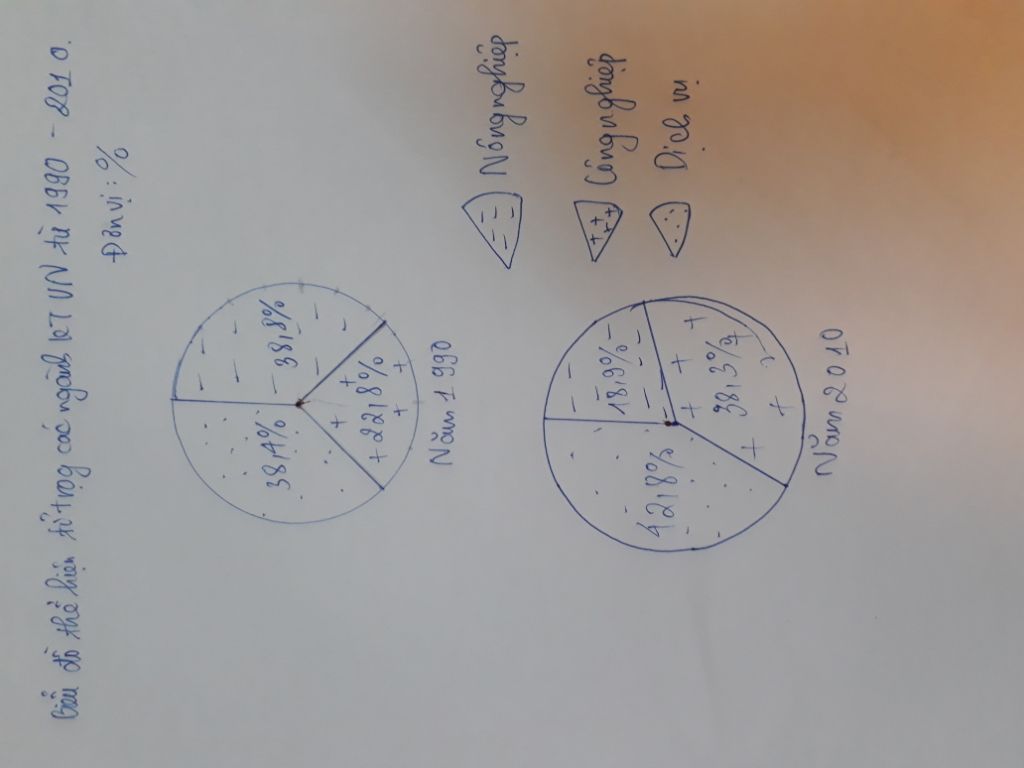 Biểu đồ thể hiện tỉ trọng các ngành KT VN từ 1990 - 2010.
Đơn vị: %
38,4%
38,8%
22,8%
Năm 1990
42,8%
18,9%
38,3%
Năm 2010
Nông nghiệp
Công nghiệp
Dịch vụ